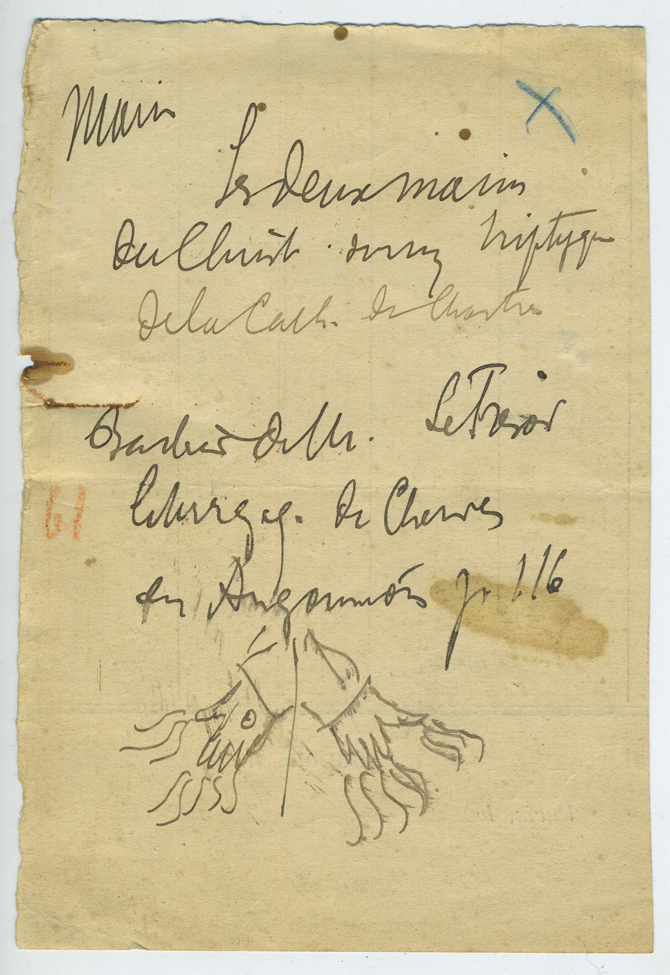 Main
Les deux mains
du Christ sur un triptyque
de la Cath. de Chartres
Barbier de M. Le Trésor
liturg. de Cherves
en Angoumois p. 116
61